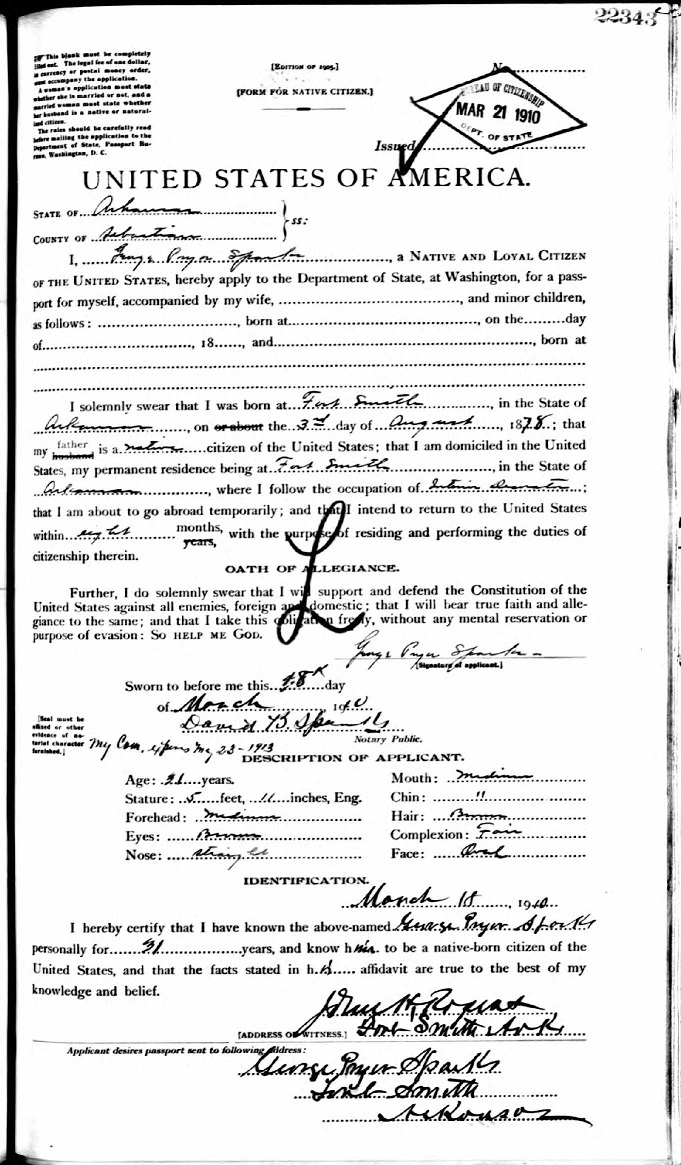 22343
☞ This blank must be completely
filled out. The legal fee of one dollar,
in currency or postal money order,
must accompany the application.
A woman's application must state
whether she is married or not, and a
married woman must state whether
her husband is a native or natural-
ized citizen.
The rules should be carefully read
before mailing the application to the
Department of State, Passport Bu-
reau, Washington, D. C.
[EDITION OF 1905.]
[FORM FOR NATIVE CITIZEN.]
No.
BUREAU OF CITIZENSHIP
MAR 21 1910
DEPT. OF STATE
Issued
UNITED STATES OF AMERICA.
STATE OF Arkansas
COUNTY OF Sebastian } ss:
I, George Pryor Sparks, a NATIVE AND LOYAL CITIZEN
OF THE UNITED STATES, hereby apply to the Department of State, at Washington, for a pass-
port for myself, accompanied by my wife, , and minor children,
as follows: , born at , on the day
of , 18 , and , born at
I solemnly swear that I was born at Fort Smith, in the State of
Arkansas, on or about the 3rd day of August, 1878; that
my father husband is a native citizen of the United States; that I am domiciled in the United
States, my permanent residence being at Fort Smith, in the State of
Arkansas, where I follow the occupation of Interior Decorator;
that I am about to go abroad temporarily; and that I intend to return to the United States
within eight months, years, with the purpose of residing and performing the duties of
citizenship therein.
L
OATH OF ALLEGIANCE.
Further, I do solemnly swear that I will support and defend the Constitution of the
United States against all enemies, foreign and domestic; that I will bear true faith and alle-
giance to the same; and that I take this obligation freely, without any mental reservation or
purpose of evasion: SO HELP ME GOD.
George Pryor Sparks
[Signature of applicant.]
Sworn to before me this 18th day
of March, 1910
David B. Sparks
Notary Public.
[Seal must be
affixed or other
evidence of no-
tarial character
furnished.]
My Com. expires May 23-1913
DESCRIPTION OF APPLICANT.
Age: 31 years.
Mouth: Medium
Stature: 5 feet, 11 inches, Eng.
Chin: "
Forehead: Medium
Hair: Brown
Eyes: Brown
Complexion: Fair
Nose: straight
Face: Oval
IDENTIFICATION.
March 18, 1910
I hereby certify that I have known the above-named George Pryor Sparks
personally for 31 years, and know him to be a native-born citizen of the
United States, and that the facts stated in his affidavit are true to the best of my
knowledge and belief.
John H.
[ADDRESS OF WITNESS.] Fort Smith Ark
Applicant desires passport sent to following address:
George Pryor Sparks
Fort Smith
Arkansas